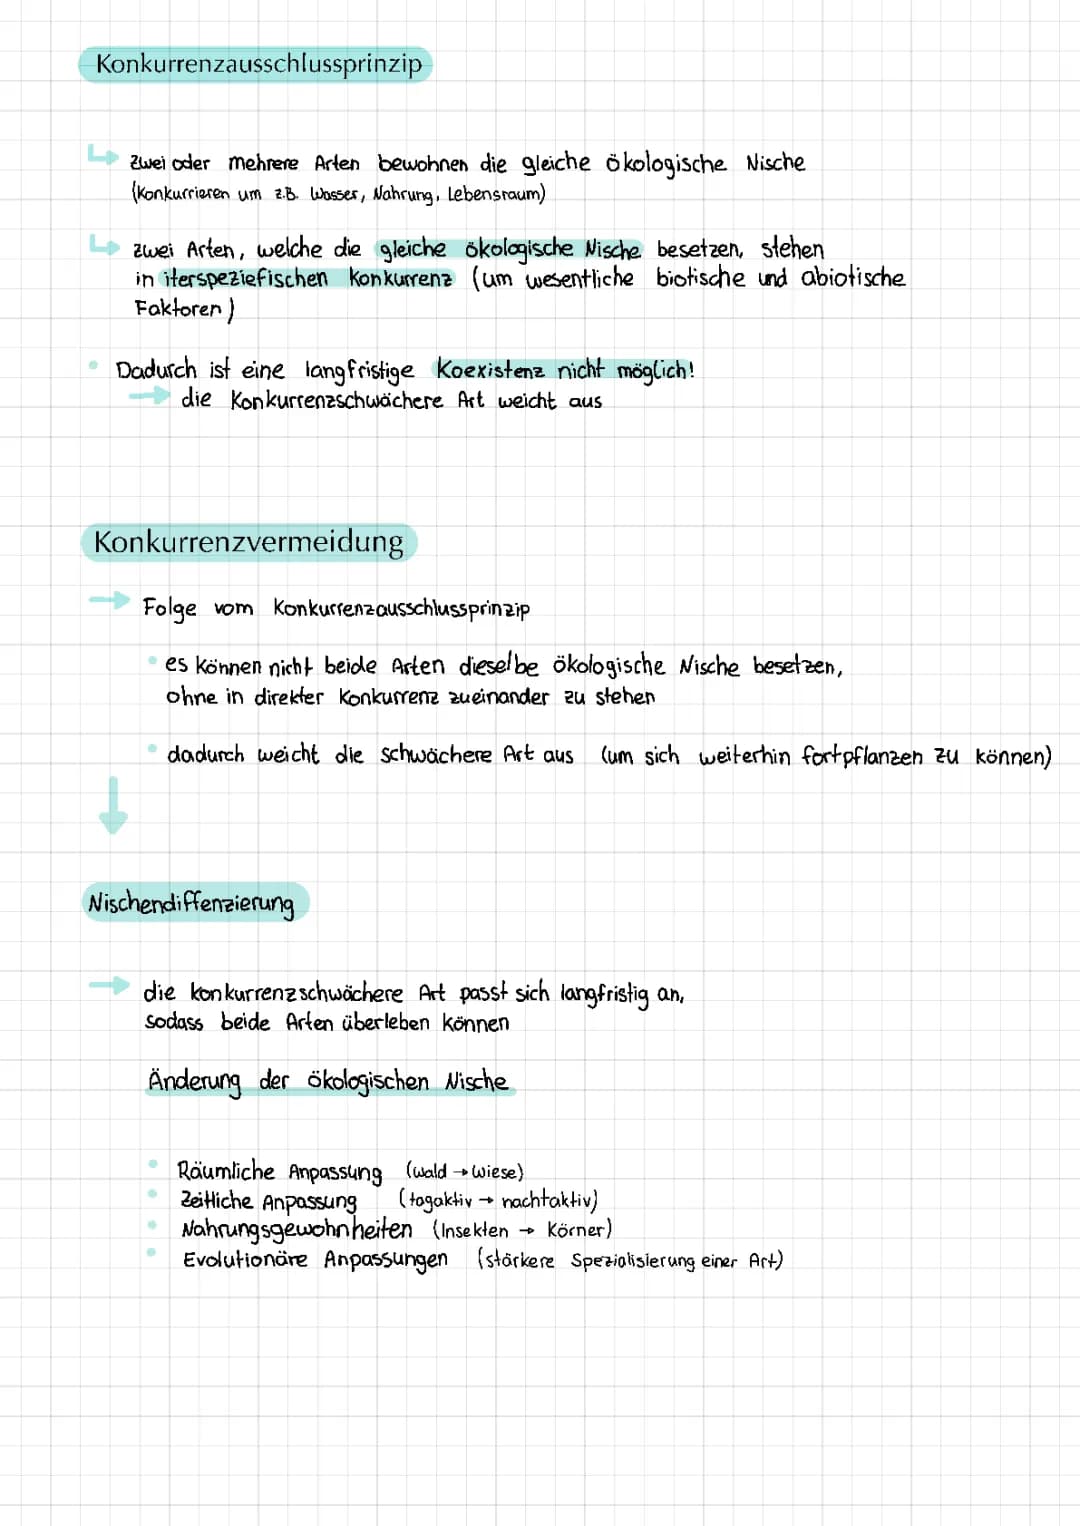 Konkurrenzausschlussprinzip
zwei oder mehrere Arten bewohnen die gleiche ökologische Nische
(Konkurrieren um z.B. Wasser, Nahrung, Lebensraum)
zwei Arten, welche die gleiche ökologische Nische besetzen, stehen
in iterspeziefischen Konkurrenz (um wesentliche biotische und abiotische
Faktoren)
Dadurch ist eine langfristige Koexistenz nicht möglich!
→ die Konkurrenzschwächere Art weicht aus
Konkurrenzvermeidung
→ Folge vom Konkurrenzausschlussprinzip
• es können nicht beide Arten dieselbe ökologische Nische besetzen,
ohne in direkter Konkurrenz zueinander zu stehen
• dadurch weicht die schwächere Art aus (um sich weiterhin fortpflanzen zu können)
↓
Nischendiffenzierung
→ die konkurrenzschwächere Art passt sich langfristig an,
sodass beide Arten überleben können
Änderung der ökologischen Nische
• Räumliche Anpassung (wald → wiese)
• Zeitliche Anpassung (tagaktiv → nachtaktiv)
• Nahrungsgewohnheiten (Insekten → Körner)
• Evolutionäre Anpassungen (stärkere Spezialisierung einer Art)